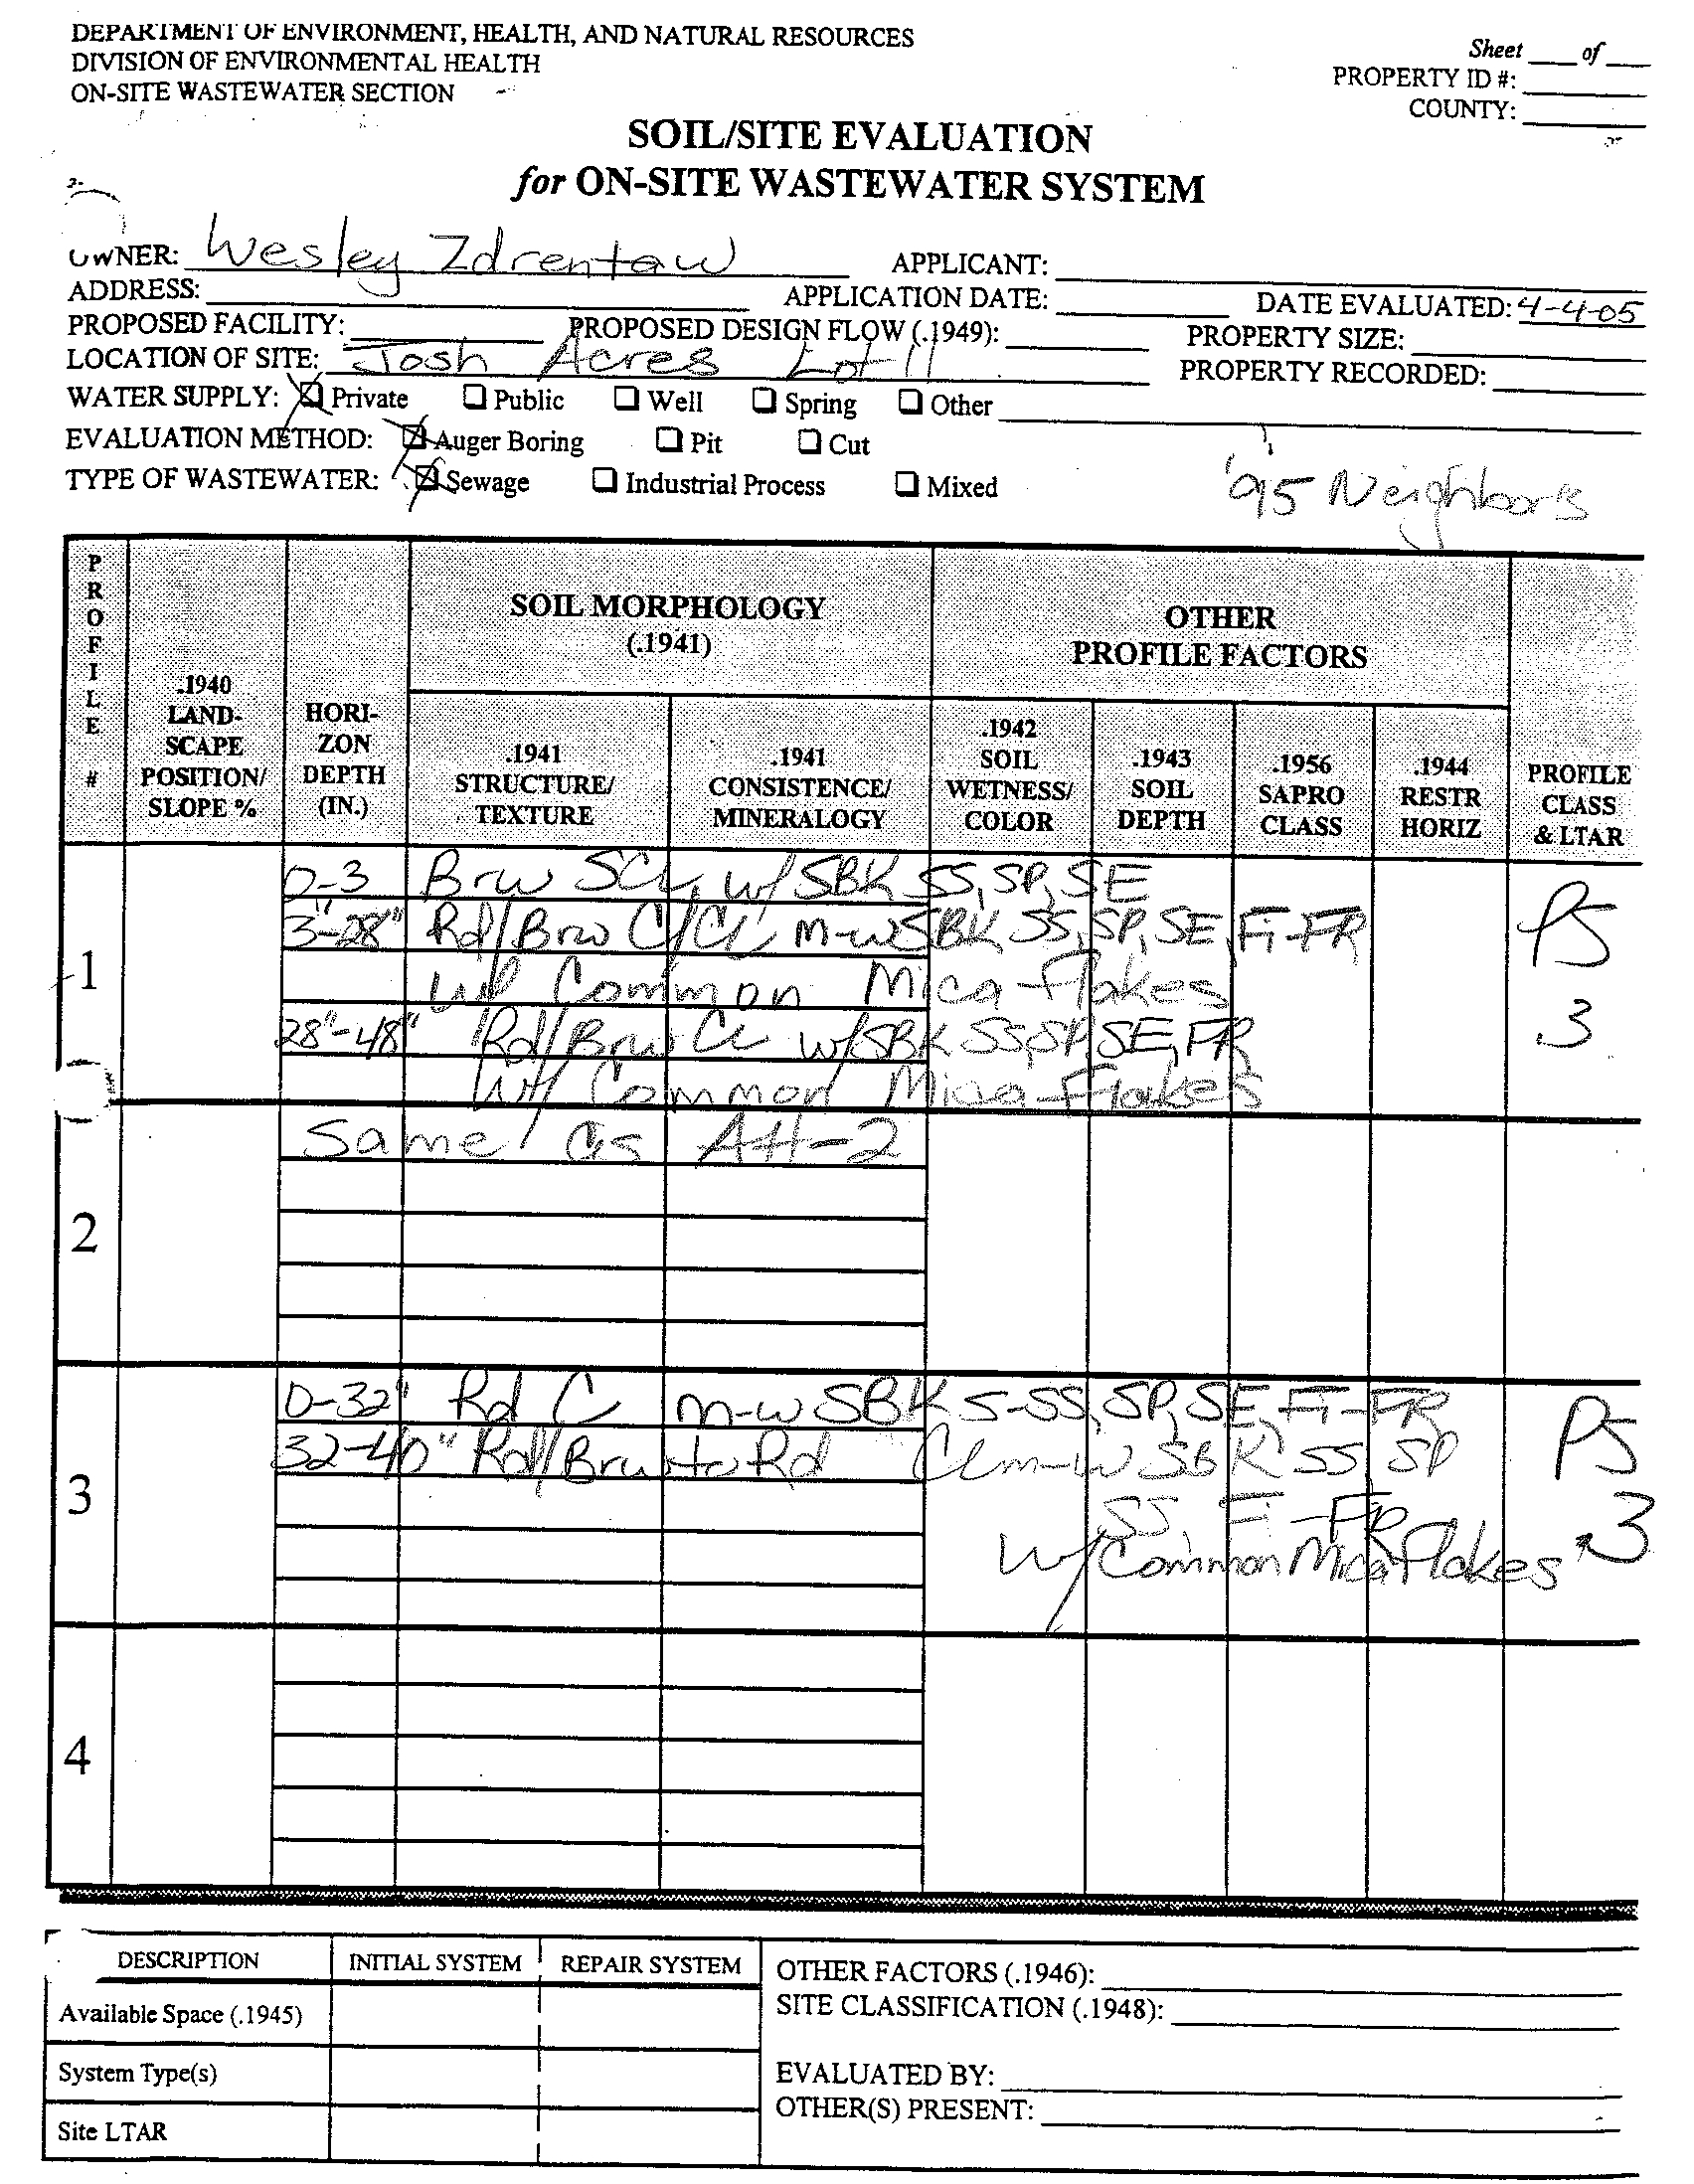 DEPARTMENT OF ENVIRONMENT, HEALTH, AND NATURAL RESOURCES
DIVISION OF ENVIRONMENTAL HEALTH
ON-SITE WASTEWATER SECTION
Sheet ___ of ___
PROPERTY ID #:
COUNTY:
SOIL/SITE EVALUATION
for ON-SITE WASTEWATER SYSTEM
OWNER: Wesley Zdrentaw APPLICANT:
ADDRESS: APPLICATION DATE: DATE EVALUATED: 4-4-05
PROPOSED FACILITY: PROPOSED DESIGN FLOW (.1949): PROPERTY SIZE:
LOCATION OF SITE: Josh Acres Lot 11 PROPERTY RECORDED:
WATER SUPPLY: ☒ Private ☐ Public ☐ Well ☐ Spring ☐ Other
EVALUATION METHOD: ☒ Auger Boring ☐ Pit ☐ Cut
TYPE OF WASTEWATER: ☒ Sewage ☐ Industrial Process ☐ Mixed
'95 Neighbors
PROFILE #
.1940 LAND-SCAPE POSITION/ SLOPE %
HORI-ZON DEPTH (IN.)
SOIL MORPHOLOGY (.1941)
.1941 STRUCTURE/ TEXTURE
.1941 CONSISTENCE/ MINERALOGY
OTHER PROFILE FACTORS
.1942 SOIL WETNESS/ COLOR
.1943 SOIL DEPTH
.1956 SAPRO CLASS
.1944 RESTR HORIZ
PROFILE CLASS & LTAR
1
0-3 Brw SCL, w/SBK SS, SP, SE
3"-28" Rd/Brw C/CL m-wSBK SS, SP, SE, Fi-FR
w/ Common Mica Flakes
28"-48" Rd/Brw CL w/SBK SS, SP, SE, FR
w/ Common Mica Flakes
PS
.3
2
Same as AH-2
3
0-32" Rd C m-w SBK S-SS, SP, SE, Fi-FR
32-40" Rd/Brw to Rd CL m-w SBK SS SP
SS, Fi-FR
w/ Common Mica Flakes
PS
.3
4
DESCRIPTION INITIAL SYSTEM REPAIR SYSTEM
Available Space (.1945)
System Type(s)
Site LTAR
OTHER FACTORS (.1946):
SITE CLASSIFICATION (.1948):
EVALUATED BY:
OTHER(S) PRESENT: